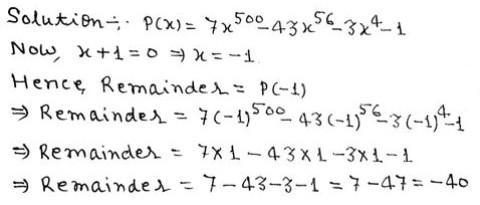 Solution÷. P(x) = 7x⁵⁰⁰-43x⁵⁶-3x⁴-1
Now, x+1=0 ⇒ x=-1.
Hence, Remainder = P(-1)
⇒ Remainder = 7(-1)⁵⁰⁰-43(-1)⁵⁶-3(-1)⁴-1
⇒ Remainder = 7×1-43×1-3×1-1
⇒ Remainder = 7-43-3-1=7-47=-40